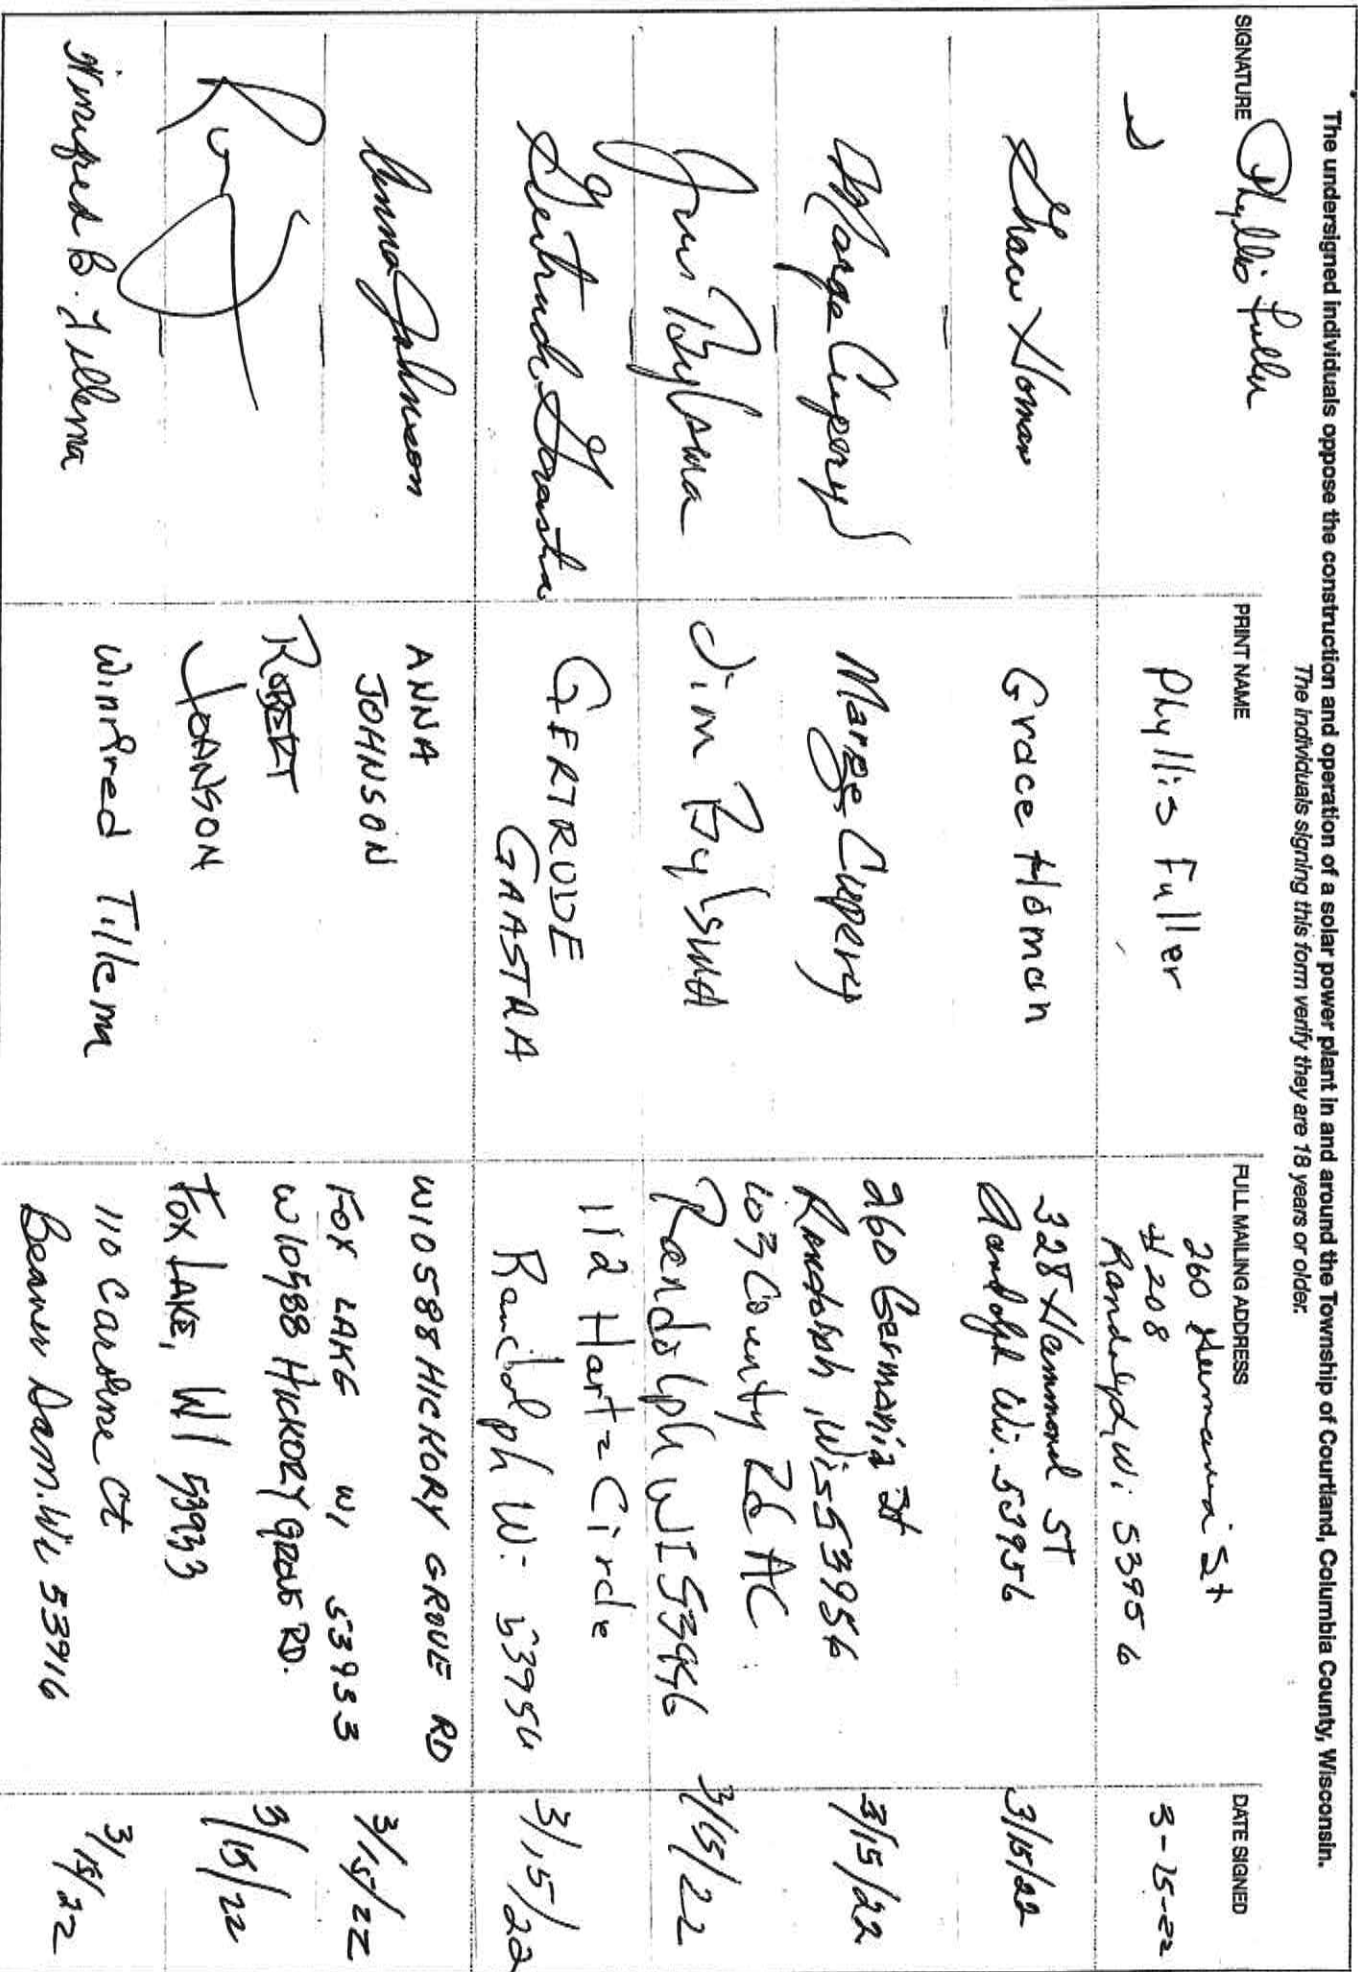 The undersigned individuals oppose the construction and operation of a solar power plant in and around the Township of Courtland, Columbia County, Wisconsin.
The individuals signing this form verify they are 18 years or older.
SIGNATURE PRINT NAME FULL MAILING ADDRESS DATE SIGNED
Phyllis Fuller Phyllis Fuller 260 Germania St
#208
Randolph, Wi 53956 3-25-22
Grace Homan Grace Homan 328 Hammond ST
Randolph Wi. 53956 3/15/22
Marge Cupery Marge Cupery 260 Germania St
Randolph, Wis 53956 3/15/22
Jim Bylsma Jim Bylsma 103 County Rd AC
Randolph WI 53956 3/15/22
Gertrude Gaastra GERTRUDE
GAASTRA 112 Hartz Circle
Randolph Wi 53956 3/15/22
Anna Johnson ANNA
JOHNSON W10588 HICKORY GROVE RD
FOX LAKE WI 53933 3/15/22
ROBERT
JOHNSON W10588 HICKORY GROVE RD.
FOX LAKE, WI 53933 3/15/22
Winifred B. Tillema Winifred Tillema 110 Caroline Ct
Beaver Dam. Wi. 53916 3/15/22